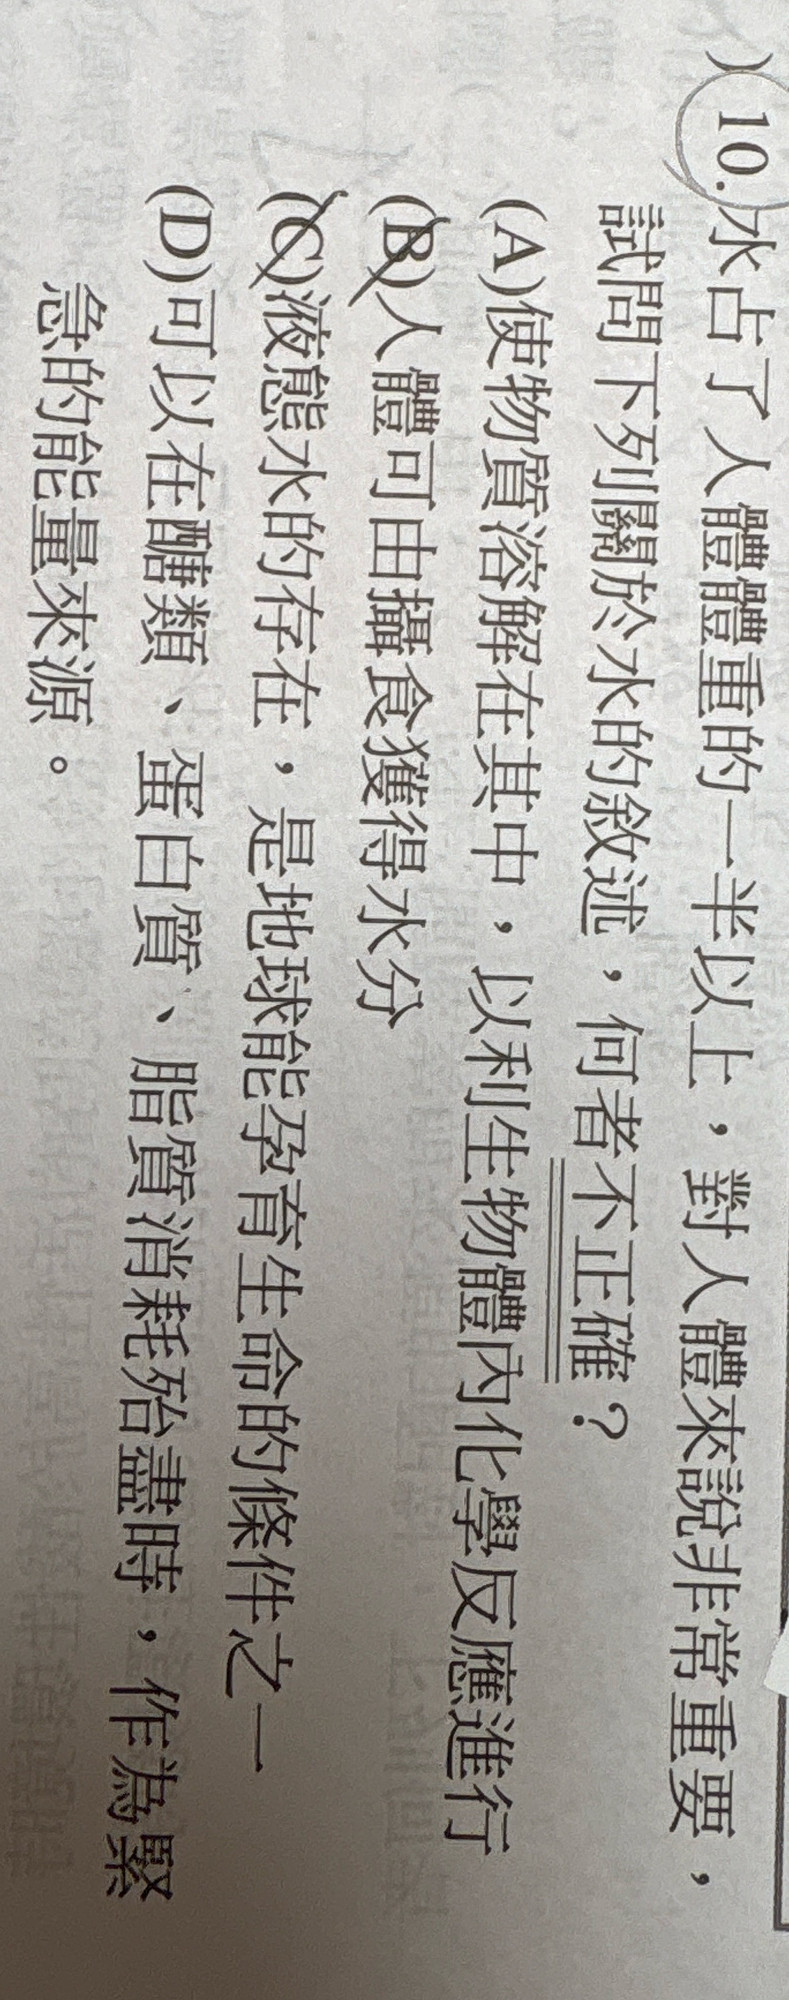 )10.水占了人體體重的一半以上，對人體來說非常重要，
試問下列關於水的敘述，何者不正確？
(A)使物質溶解在其中，以利生物體內化學反應進行
(B)人體可由攝食獲得水分
(C)液態水的存在，是地球能孕育生命的條件之一
(D)可以在醣類、蛋白質、脂質消耗殆盡時，作為緊
急的能量來源。